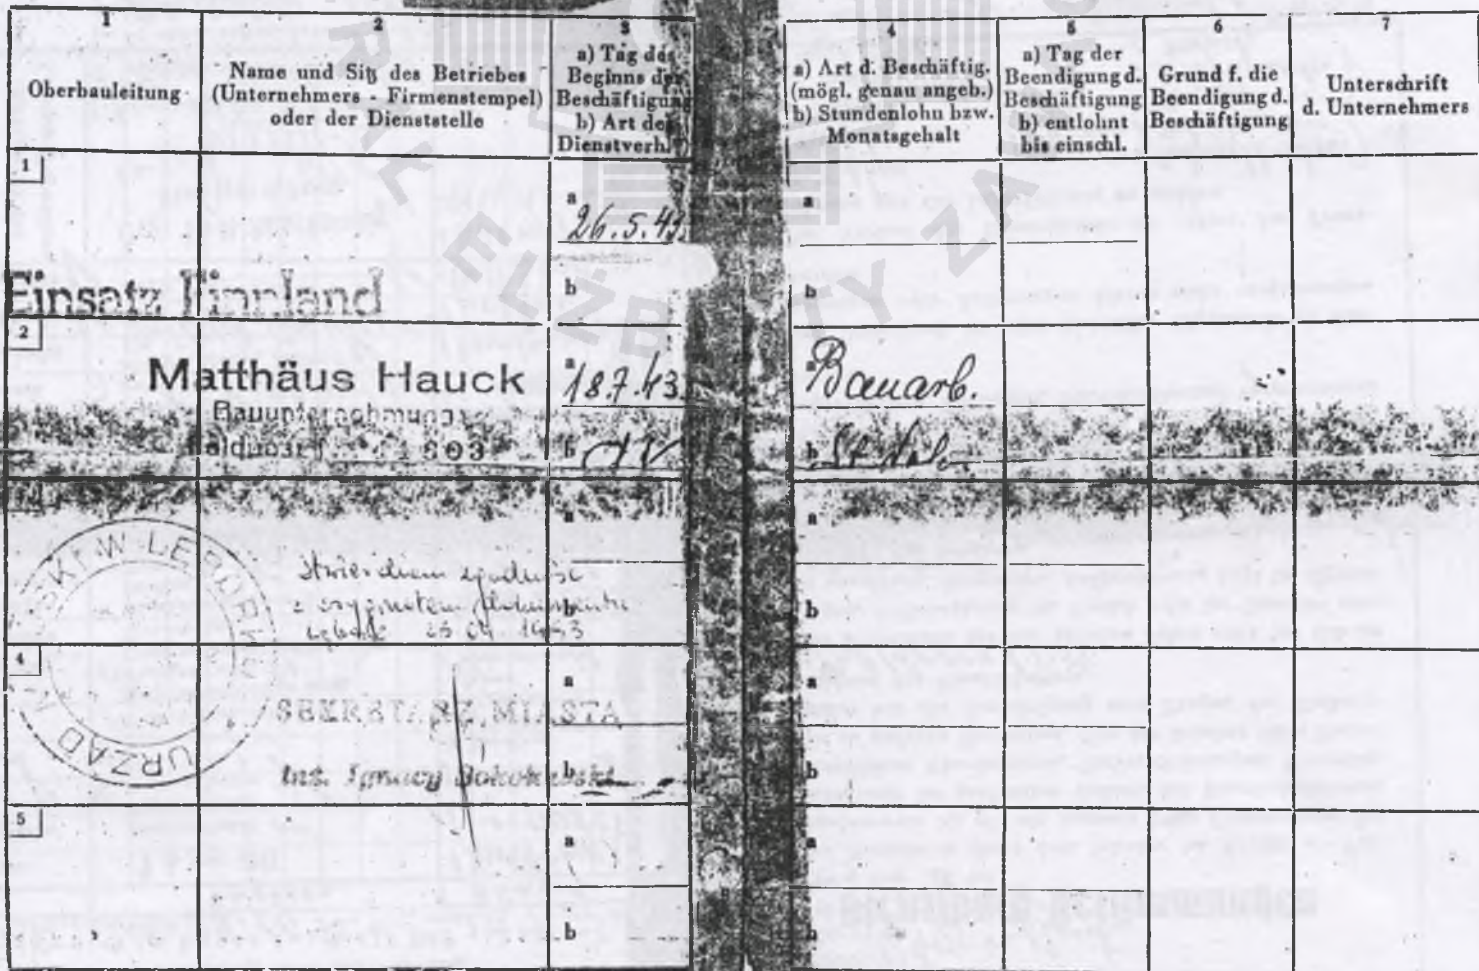 1
Oberbauleitung
2
Name und Sitz des Betriebes
(Unternehmers - Firmenstempel)
oder der Dienststelle
3
a) Tag des
Beginns der
Beschäftigung
b) Art des
Dienstverh.
4
a) Art d. Beschäftig.
(mögl. genau angeb.)
b) Stundenlohn bzw.
Monatsgehalt
5
a) Tag der
Beendigung d.
Beschäftigung
b) entlohnt
bis einschl.
6
Grund f. die
Beendigung d.
Beschäftigung
7
Unterschrift
d. Unternehmers
1
a
26.5.43
b
a
b
Einsatz Finnland
2
Matthäus Hauck
Bauunternehmung
a
18.7.43
b
a
Bauarb.
b
a
b
a
b
W LĘBORKU
URZĄD
4
SEKRETARZ MIASTA
Inż. Ignacy
a
b
a
b
5
a
b
a
b
ELŻBIETY ZA